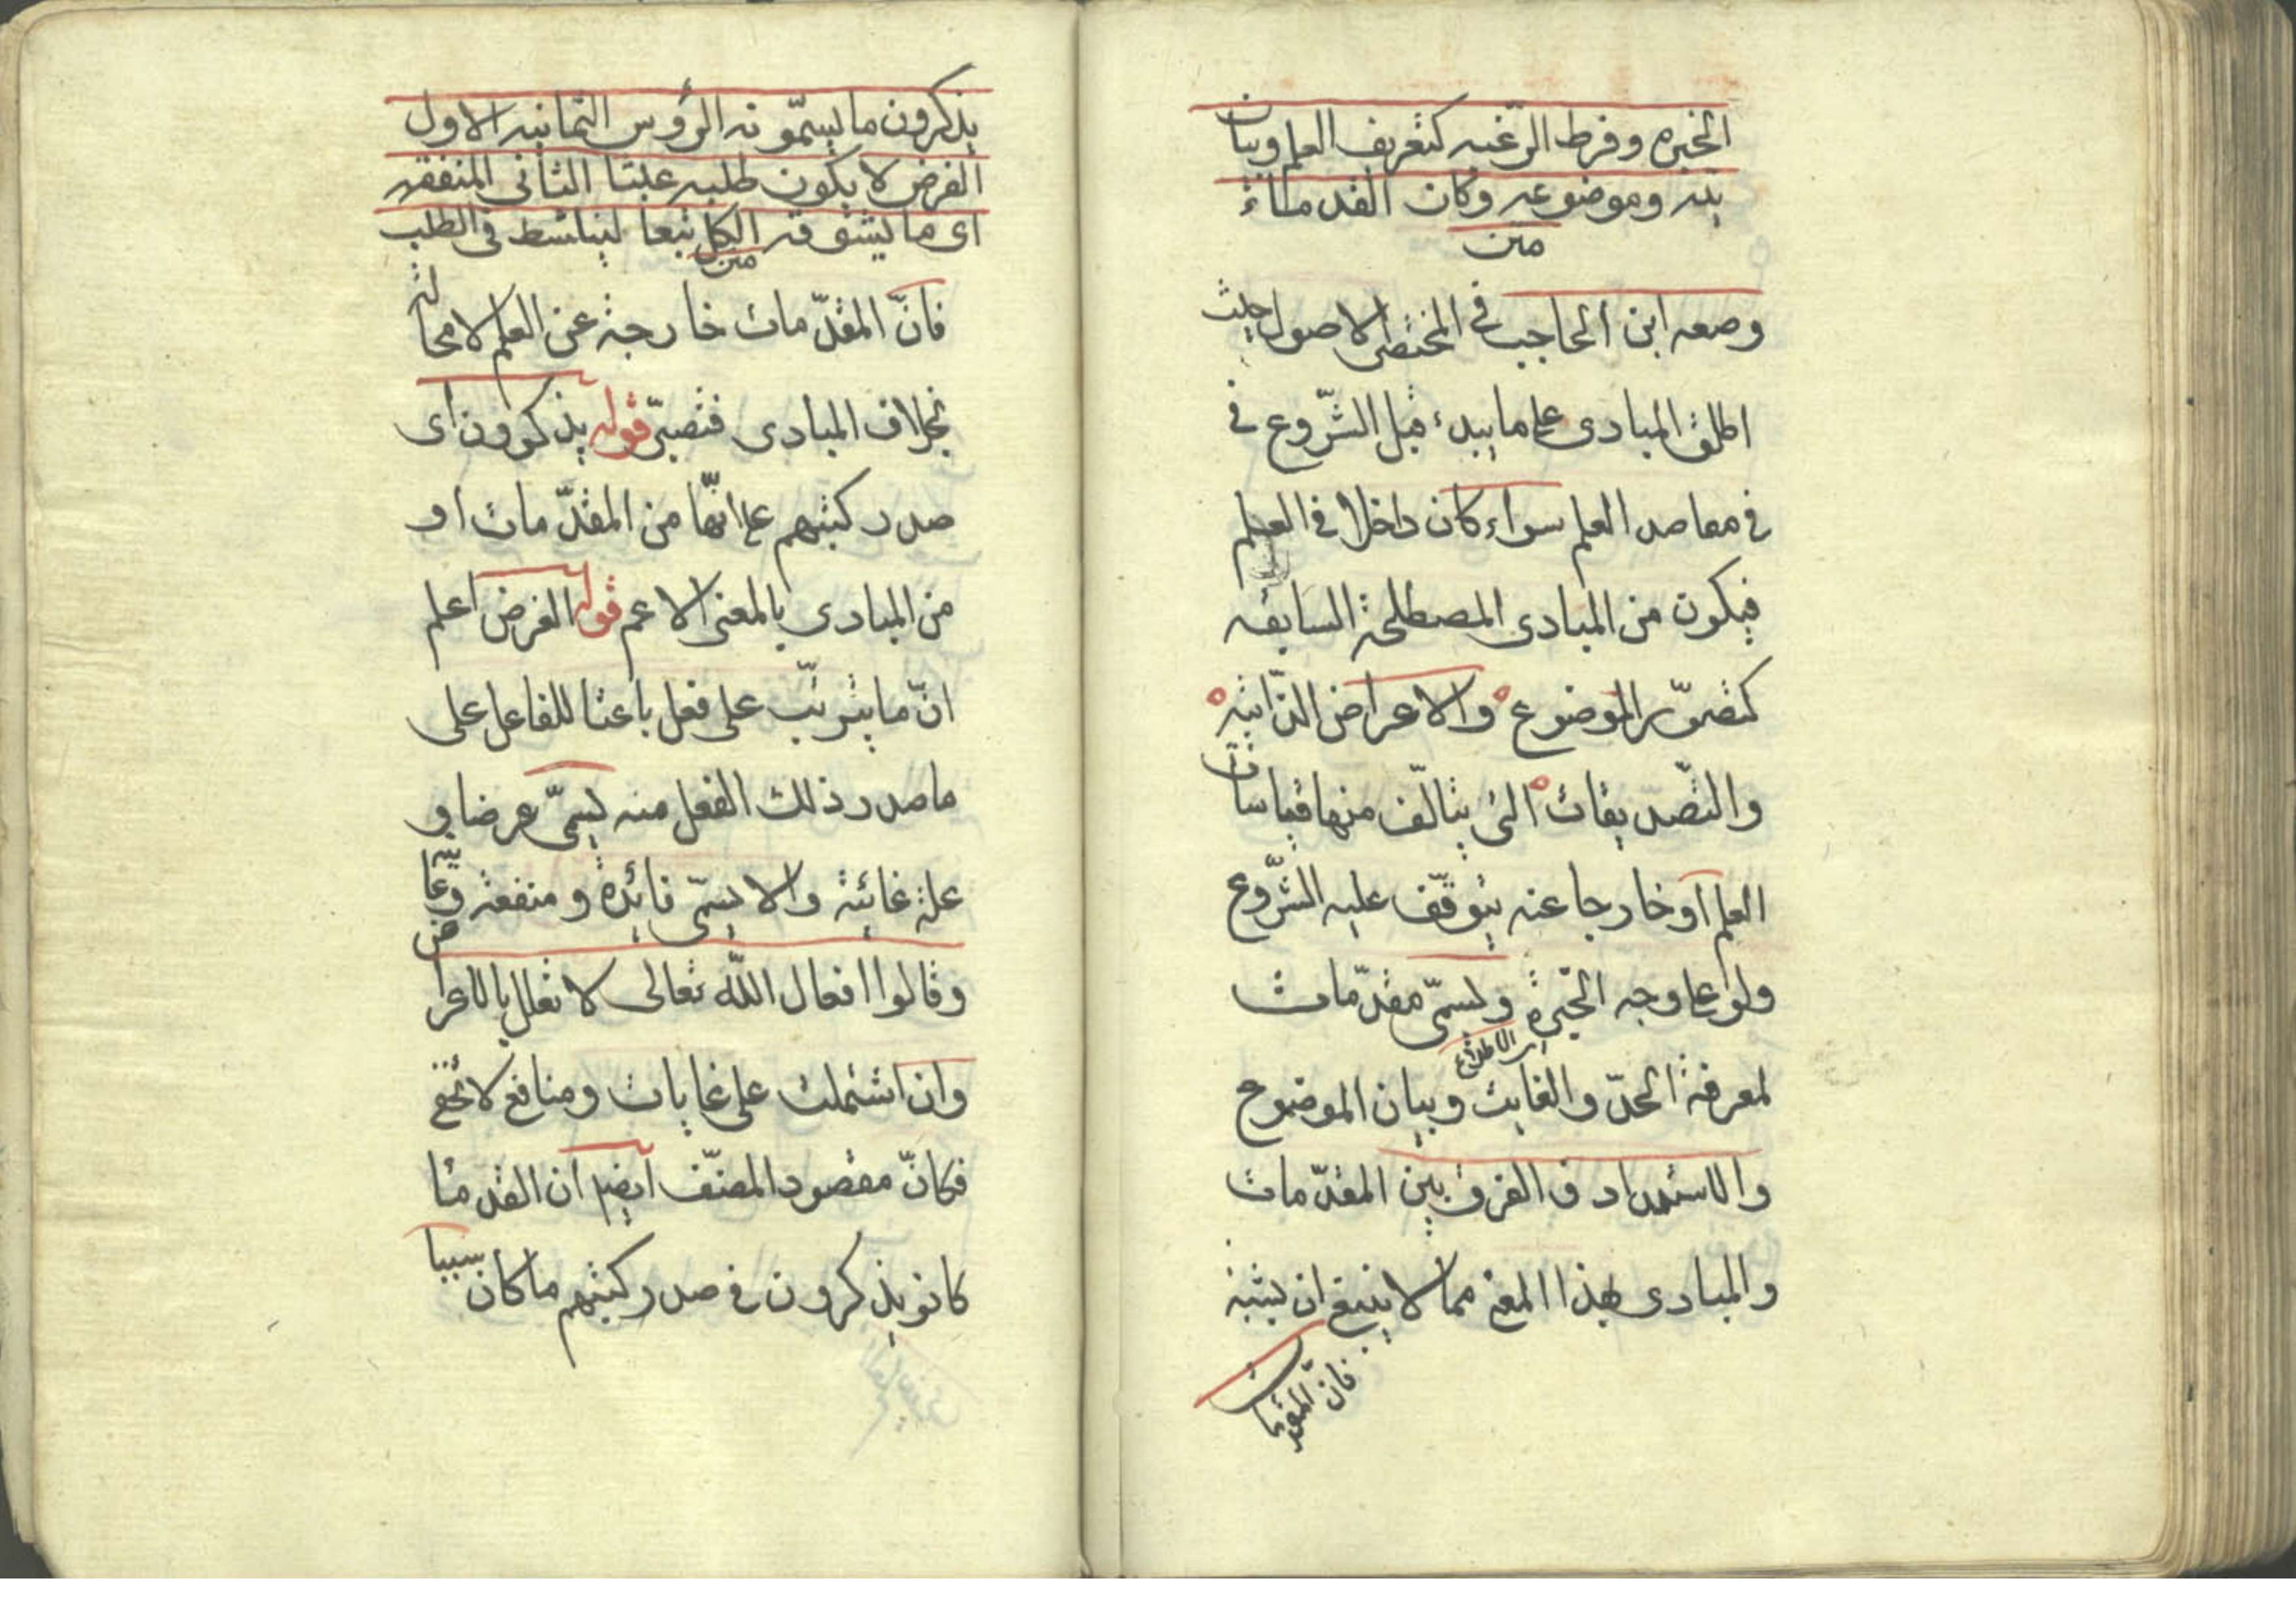 الخبره وفرط الرّغبه كتعريف العلم وبيان
يته وموضوعه وكان القدماء
متن
وضعه ابن الحاجب فى المختصر الاصول حيث
اطلق المبادى على ما يبدء قبل الشّروع فى
فى مقاصد العلم سواء كان داخلا فى العلم
فيكون من المبادى المصطلحة السابقه
كتصوّر الموضوع والاعراض الذّاتيّه
والتّصديقات الّتى يتالّف منها قياسات
العلم او خارجا عنه يتوقّف عليه الشّروع
ولو على وجه الخبرة ويسمّى مقدّمات
لمعرفة الحدّ والغايت وبيان الموضوع
والاستمداد ف الفرق بين المقدّمات
والمبادى بهذا المعنى مما لا ينبغى ان يشتبه
فانّ المقدّمات
يذكرون ما يسمّونه الرؤس الثمانيه الاول
الغرض لا يكون طلبه عبثا الثانى المنفعه
اى ما يتشوقه الكل تبعا لينا نشط فى الطلب
متن
فانّ المقدّمات خارجة عن العلم لا محالة
بخلاف المبادى فتصبّر قوله يذكرون اى
صدر كتبهم على انّها من المقدّمات او
من المبادى بالمعنى الاعم قوله الغرض اعلم
انّ ما يترتّب على فعل باعثا للفاعل على
ما صدر ذلك الفعل منه يسمّى غرضا و
علة غائية والا يسمّى فائدة ومنفعة وغاية
وقالوا افعال اللّه تعالى لا تعلل بالاعراض
وان اشتملت على غايات ومنافع لا تخفى
فكانّ مقصود المصنّف ايضا ان القدما
كانو يذكرون فى صدر كتبهم ما كان سببا